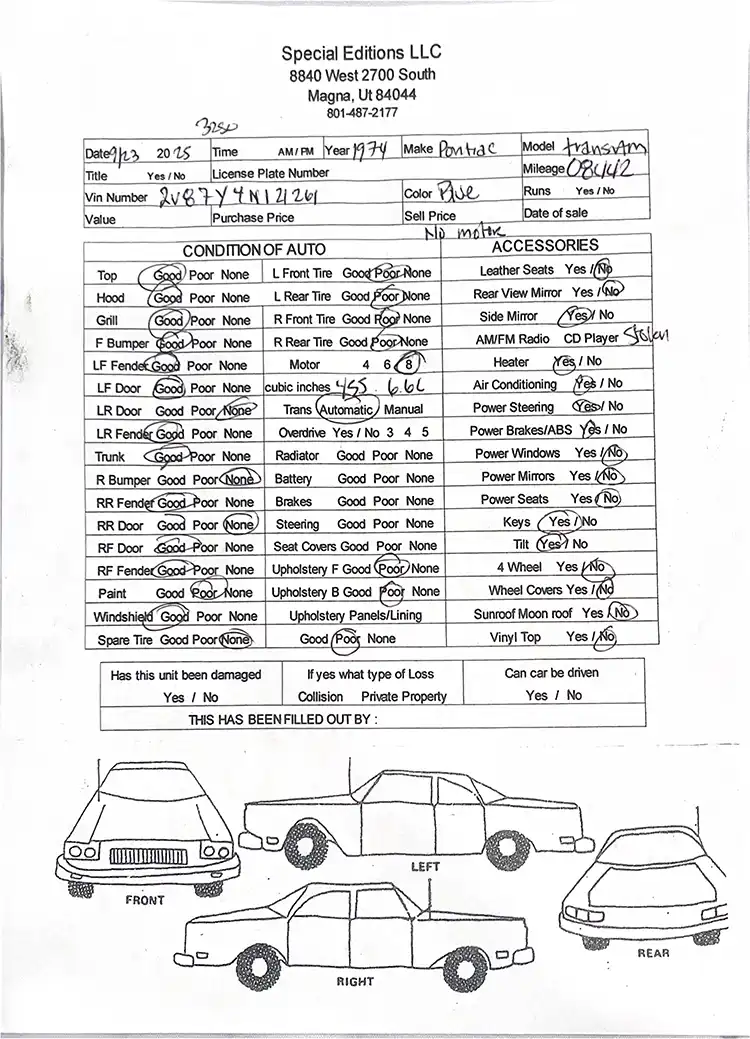 Special Editions LLC
8840 West 2700 South
Magna, Ut 84044
801-487-2177
3250
Date 9/23 2025 Time AM / PM Year 1974 Make Pontiac Model transAm
Title Yes / No License Plate Number Mileage 08442
Vin Number 2V87Y4N121261 Color Blue Runs Yes / No
Value Purchase Price Sell Price Date of sale
No motor
CONDITION OF AUTO ACCESSORIES
Top Good Poor None L Front Tire Good Poor None Leather Seats Yes / No
Hood Good Poor None L Rear Tire Good Poor None Rear View Mirror Yes / No
Grill Good Poor None R Front Tire Good Poor None Side Mirror Yes / No
F Bumper Good Poor None R Rear Tire Good Poor None AM/FM Radio CD Player Stolen
LF Fender Good Poor None Motor 4 6 8 Heater Yes / No
LF Door Good Poor None cubic inches 455 6.6L Air Conditioning Yes / No
LR Door Good Poor None Trans Automatic Manual Power Steering Yes / No
LR Fender Good Poor None Overdrive Yes / No 3 4 5 Power Brakes/ABS Yes / No
Trunk Good Poor None Radiator Good Poor None Power Windows Yes / No
R Bumper Good Poor None Battery Good Poor None Power Mirrors Yes / No
RR Fender Good Poor None Brakes Good Poor None Power Seats Yes / No
RR Door Good Poor None Steering Good Poor None Keys Yes / No
RF Door Good Poor None Seat Covers Good Poor None Tilt Yes / No
RF Fender Good Poor None Upholstery F Good Poor None 4 Wheel Yes / No
Paint Good Poor None Upholstery B Good Poor None Wheel Covers Yes / No
Windshield Good Poor None Upholstery Panels/Lining Sunroof Moon roof Yes / No
Spare Tire Good Poor None Good Poor None Vinyl Top Yes / No
Has this unit been damaged If yes what type of Loss Can car be driven
Yes / No Collision Private Property Yes / No
THIS HAS BEEN FILLED OUT BY :
LEFT
FRONT
REAR
RIGHT